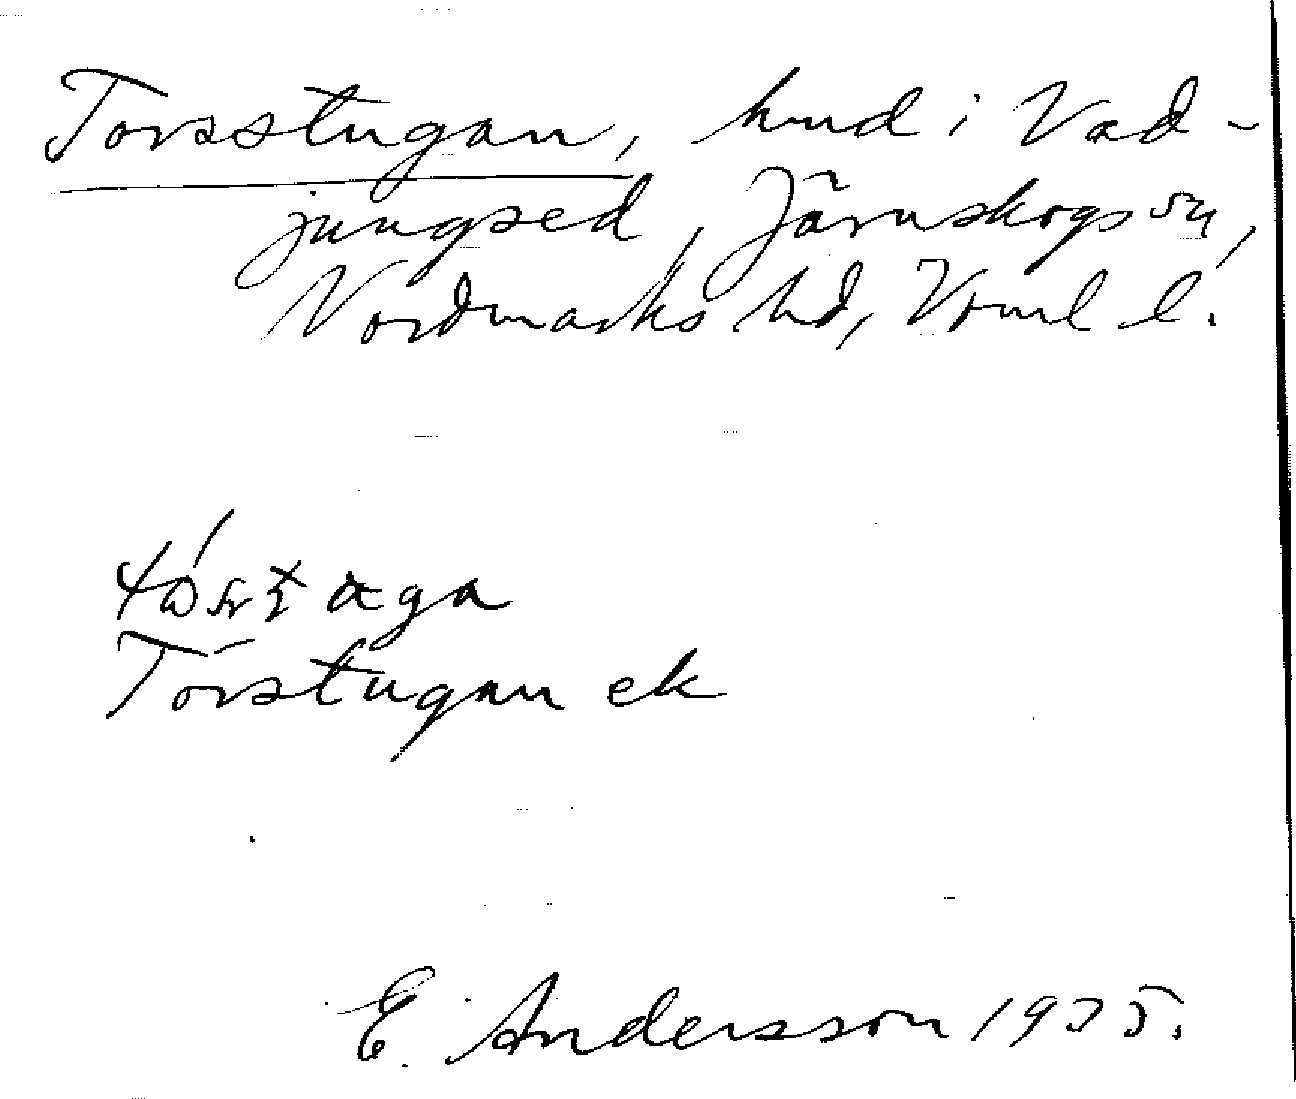 Torsstugan, hmd i Vad-
jungsed, Järnskogs sn,
Nordmarks hd, Vrml l.
Torstugan ek
E. Andersson 1935.